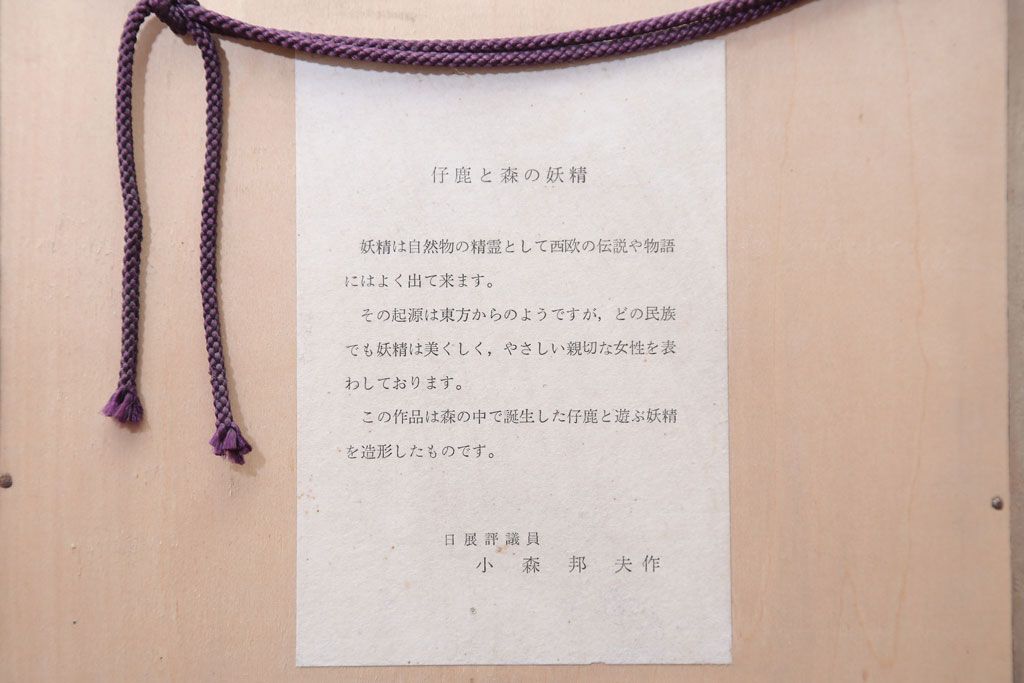 仔鹿と森の妖精
妖精は自然物の精霊として西欧の伝説や物語
にはよく出て来ます。
その起源は東方からのようですが，どの民族
でも妖精は美くしく，やさしい親切な女性を表
わしております。
この作品は森の中で誕生した仔鹿と遊ぶ妖精
を造形したものです。
日展評議員
小森邦夫作